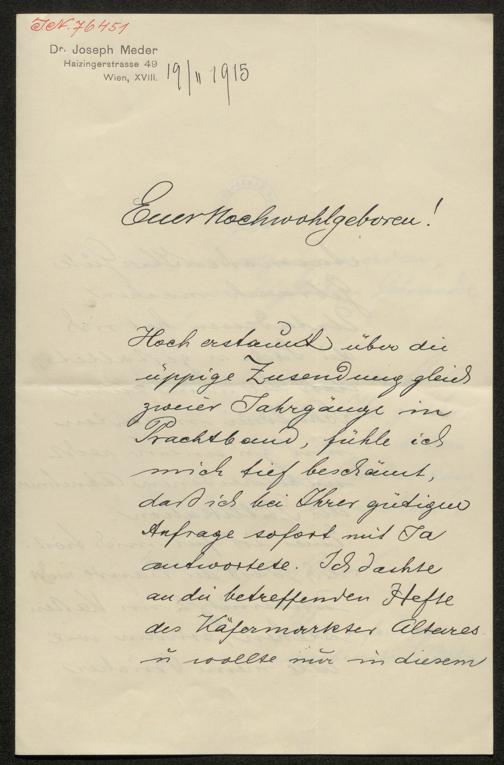 I.N. 76451
Dr. Joseph Meder
Haizingerstrasse 49
Wien, XVIII.
19/II 1915
Euer Hochwohlgeboren!
Hoch erstaunt über die
üppige Zusendung gleich
zweier Jahrgänge in
Prachtband, fühle ich
mich tief beschämt,
daß ich bei Ihrer gütigen
Anfrage sofort mit Ja
antwortete. Ich dachte
an die betreffenden Hefte
des Käfermarkter Altares
u wollte nur in diesem